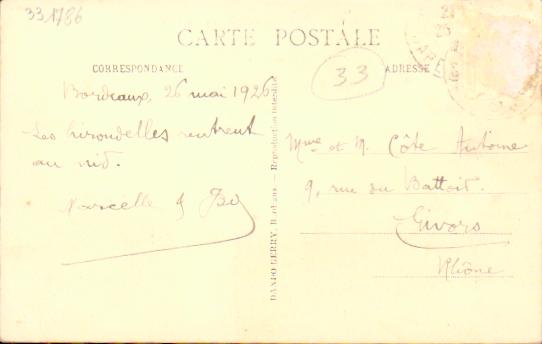 331786
CARTE POSTALE
CORRESPONDANCE
33
ADRESSE
Bordeaux, 26 mai 1926
Les hirondelles rentrent
au nid.
Marcelle &
Mme et M. Côte Antoine
9, rue du Battoit.
Givors
Rhône
Reproduction interdite